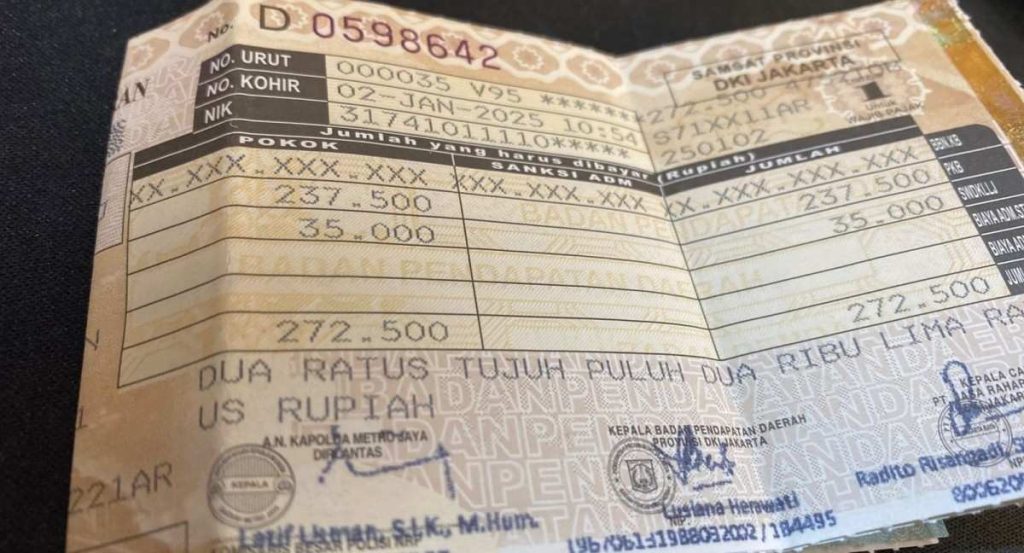 No. D 0598642
NO. URUT
000035 V95 ******272-500
NO. KOHIR
02-JAN-2025 10:54
S71XX1IAR
NIK
31741011110*****
250102
SAMSAT PROVINSI
DKI JAKARTA
1
Untuk
WAJIB PAJAK
AN
Jumlah yang harus dibayar (Rupiah)
POKOK
SANKSI ADM
JUMLAH
XX.XXX.XXX.XXX XXX.XXX.XXX XX.XXX.XXX.XXX BBN.KB
237.500 237.500 PKB
35.000 35.000 SWDKLLJ
BIAYA ADM.ST
BIAYA AD
272.500 272.500 JUM
DUA RATUS TUJUH PULUH DUA RIBU LIMA RA
US RUPIAH
221AR
A.N. KAPOLDA METRO JAYA
DIRLANTAS
KEPALA
KEPALA BADAN PENDAPATAN DAERAH
PROVINSI DKI JAKARTA
KEPALA CA
PT JASA RAHAR
Latif Usman, S.I.K., M.Hum.
Lusiana Herawati
Radito Risangadi, S